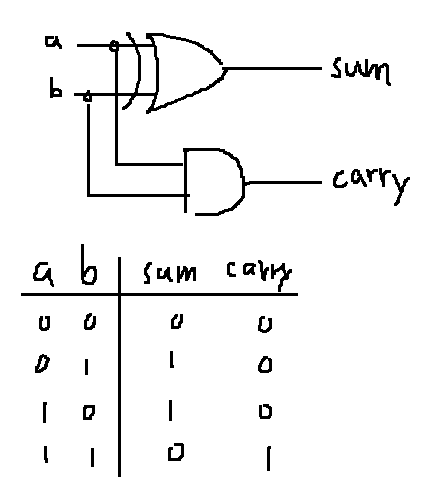 a sum
b
carry
a b sum carry
0 0 0 0
0 1 1 0
1 0 1 0
1 1 0 1